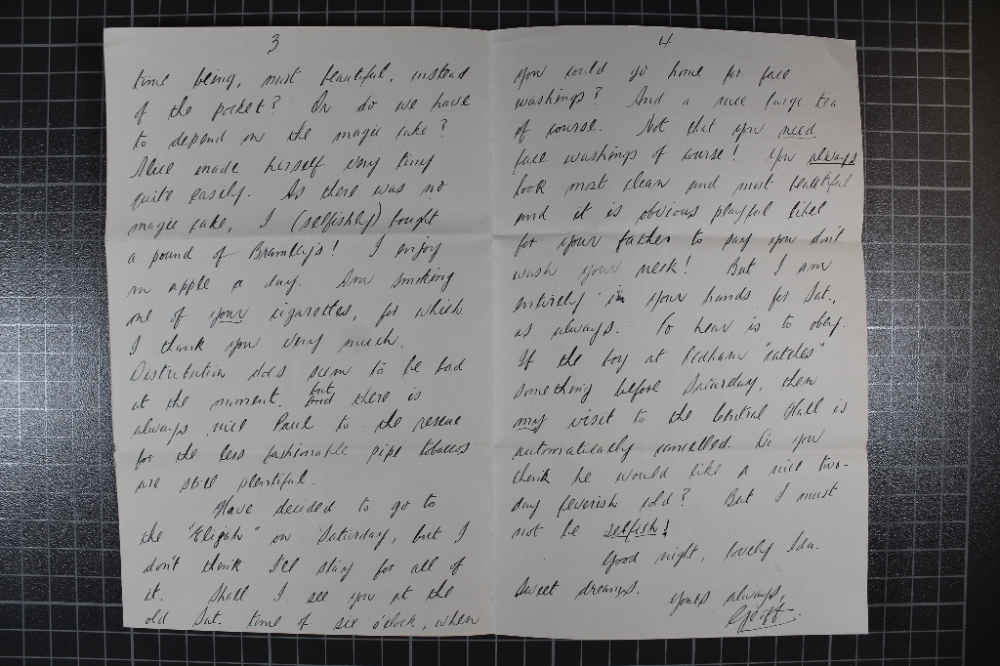 3
time being, most beautiful, instead
of the pocket? Or do we have
to depend on the magic cake?
Alice made herself very tiny
quite easily. As there was no
magic cake, I (selfishly) bought
a pound of Bramley's! I enjoy
an apple a day. Am smoking
one of your cigarettes, for which
I thank you very much.
Distribution does seem to be bad
at the moment, but there is
always nice Paul to the rescue
for the less fashionable pipe tobaccos
are still plentiful.
Have decided to go to
the "Elijah" on Saturday, but I
don't think I'll stay for all of
it. Shall I see you at the
old Sat. time of six o'clock, when
4
you could go home for face
washings? And a nice large tea
of course. Not that you need
face washings of course! You always
look most clean and most beautiful
and it is obvious playful libel
for your father to say you don't
wash your neck! But I am
entirely in your hands for Sat.,
as always. To hear is to obey.
If the boy at Pedham "catches"
something before Saturday, then
my visit to the Central Hall is
automatically cancelled. Do you
think he would like a nice two-
day feverish cold? But I must
not be selfish!
Good night, lovely Ida.
Sweet dreams.
Yours always,
Geoff.